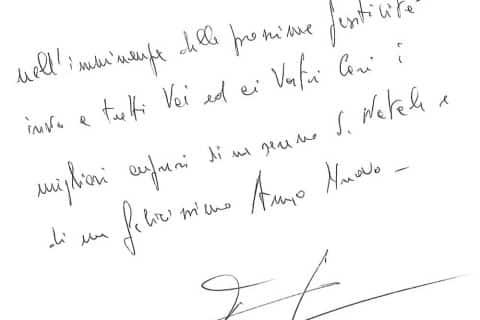 nell'imminenza delle prossime festività
invio a tutti Voi ed ai Vostri Cari i
migliori auguri di un sereno S. Natale e
di un felicissimo Anno Nuovo -